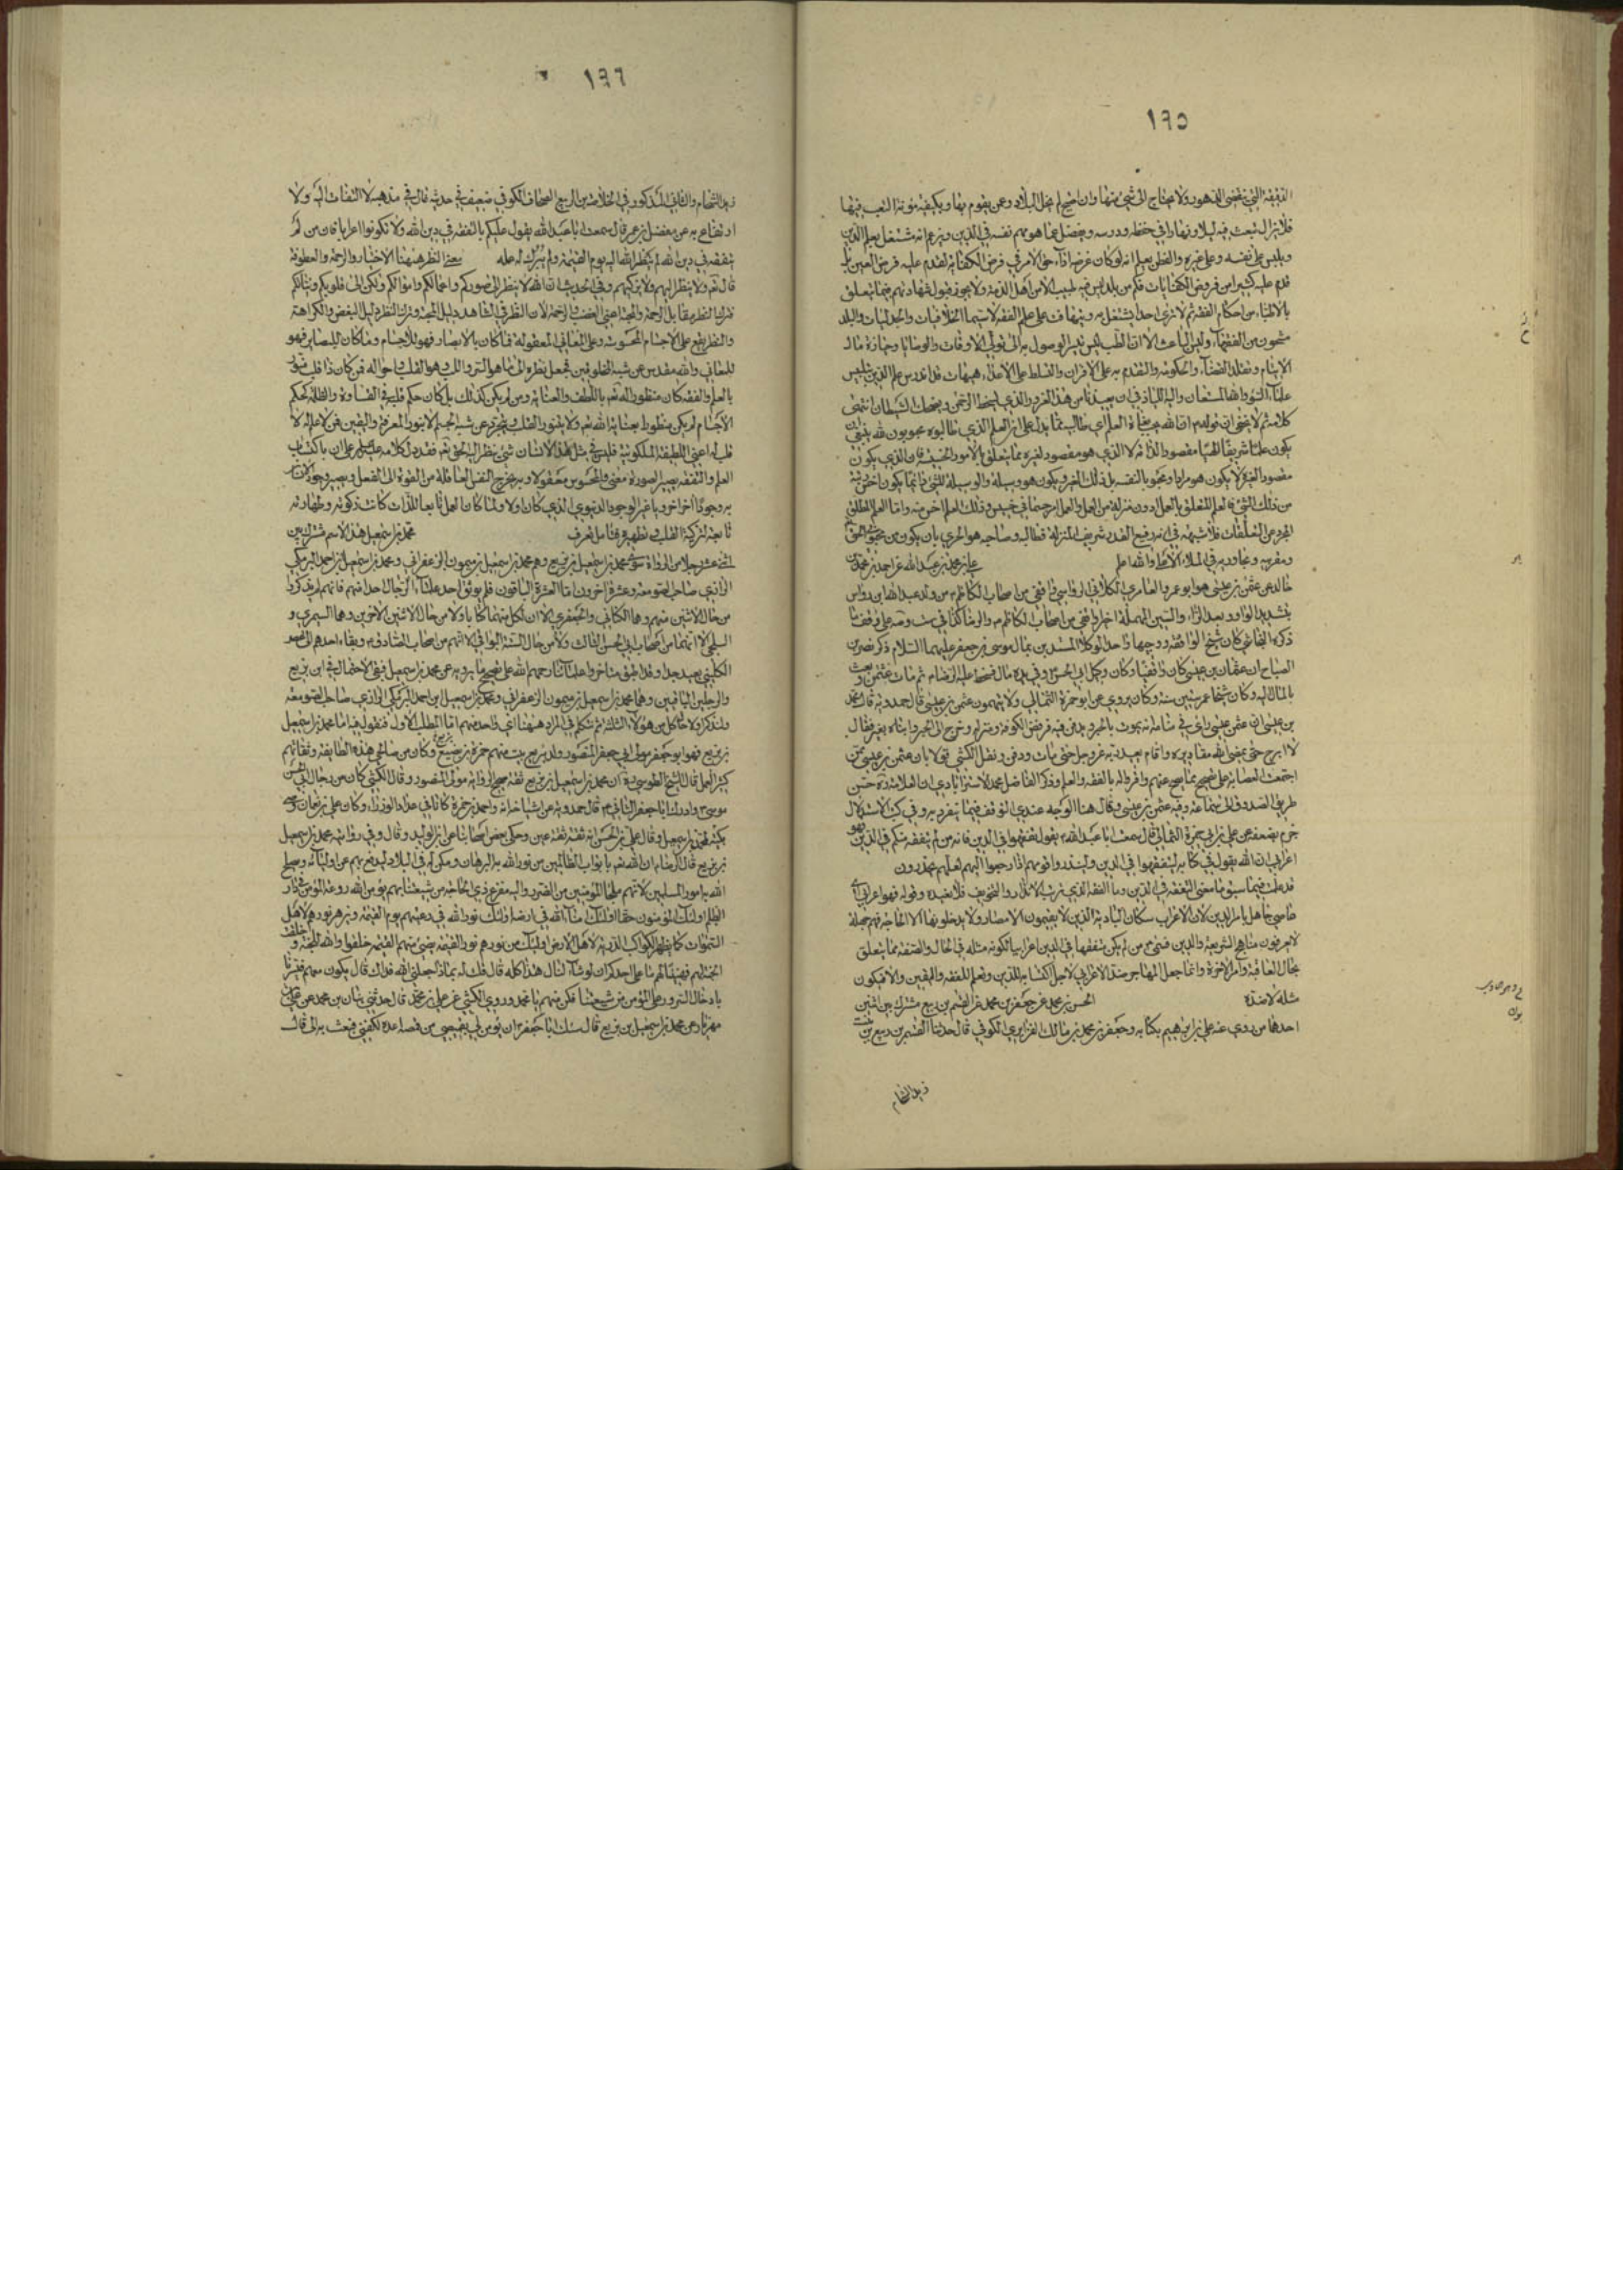 ١٦٥
الدقيقة التي تنقضي الدهور ولا يحتاج الى شيء منها وان احتيج لم يخل البلاد وعن يقوم بها ويكفيه مؤنة التعب فيها
فلا يزال يتعب فيه ليلا ونهارا في حفظه ودرسه ويغفل عما هو مهم نفسه في الدين ويزعم انه مشتغل بعلم الدين
ويلبس على نفسه وعلى غيره والفطن يعلم انه لو كان غرضه اداء حق الامر في فرض الكفاية لقدم عليه فرض العين بل
قدم عليه كثيرا من فروض الكفايات فكم من بلد ليس فيه طبيب الا من اهل الذمة ولا يجوز قبول شهادتهم فيما يتعلق
بالاطباء من احكام الفقه ثم لا نرى احدا يشتغل به ويتهافت على علم الفقه لا سيما الخلافيات والجدليات والبلد
مشحون من الفقهاء وليس الباعث الا ان الطب ليس تيسر الوصول به الى تولي الاوقاف والوصايا وحيازة مال
الايتام وتقلد القضاء والحكومة والتقدم به على الاقران والتسلط على الاعداء هيهات قد اندرس علم الدين بتلبيس
علماء السوء والله المستعان واليه اللياذ في ان يعيذنا من هذا الغرور الذي يسخط الرحمن ويضحك الشيطان انتهى
كلامه ثم لا يخفى ان قوله ان الله يحب بغاة العلم اي طالبيه مما يدل على ان العلم الذي طالبوه محبوبون لله ينبغي ان
يكون علما شريفا الهيا مقصودا لذاته لا الذي هو مقصود لغيره مما يتعلق بالامور الخسيسة فان الذي يكون
مقصودا لغيره لا يكون هو مرادا ومحبوبا لنفسه بل ذلك الغير ويكون هو وسيلة والوسيلة للشيء دائما يكون اخس رتبة
من ذلك الشيء فالعلم المتعلق بالعمل ادون منزلة من العمل والعمل امر جسماني خسيس وذلك العلم اخس منه واما العلم المطلق
المجرد عن التعلقات فلا شبهة في انه رفيع القدر شريف المنزلة فطالبه وصاحبه هو الحري بان يكون من محبوبي الحق
ومقربيه ومجاوريه في الملاء الاعلى والله اعلم علي بن محمد بن عبد الله عن احمد بن محمد بن
خالد عن عثمن بن عيسى هو ابو عمرو العامري الكلابي الرواسي واقفي من اصحاب الكاظم من ولد عبد الله ابن رواس
بتشديد الواو وبعد الراء والسين المهملة
ذكره النجاشي كان شيخ الواقفة ووجهها واحد الوكلاء المستبدين بمال موسى بن جعفر عليهما السلام ذكر نصر بن
الصباح ان عثمان بن عيسى كان واقفيا وكان وكيل ابي الحسن وفي يده مال فسخط عليه الرضا ثم تاب عثمن وبعث
بالمال اليه وكان شيخا عمر ستين سنة وكان يروي عن ابو حمزة الثمالي ولا يتهمون عثمن بن عيسى قال حمدويه قال محمد
بن عيسى ان عثمن بن عيسى رأى في منامه انه يموت بالحير ويدفن فيه فرفض الكوفة ومنزله وخرج الى الحير وابناه معه فقال
لا ابرح حتى يمضي الله مقاديره واقام يعبد ربه عز وجل حتى مات ودفن ونقل الكشي قولا بان عثمن بن عيسى ممن
اجتمعت العصابة على تصحيح ما يصح عنهم واقروا له بالفقه والعلم وذكر الفاضل محمد الاسترابادي ان العلامة حسن
طريق الصدوق الى سماعة وفيه عثمن بن عيسى وقال هنا الوجه عندي التوقف فيما ينفرد به وفي كتب الاستدلال
جزم بضعفه عن علي بن ابي حمزة الثمالي قال سمعت ابا عبد الله يقول تفقهوا في الدين فانه من لم يتفقه منكم في الدين فهو
اعرابي ان الله يقول في كتابه ليتفقهوا في الدين ولينذروا قومهم اذا رجعوا اليهم لعلهم يحذرون
قد علمت فيما سبق ما معنى التفقه في الدين وما الفقه الذي يترتب الانذار والتخويف فلا نعيده وقوله فهو اعرابي اي
عامي جاهل بامر الدين لان الاعراب سكان البادية الذين لا يقيمون الامصار ولا يدخلونها الا لحاجة فهم جهلة
لا يعرفون مناهج الشريعة والدين فمعنى من لم يكن متفقها في الدين اعرابيا لكونه مثله في الحال والصفة مما يتعلق
بحال العاقبة وامر الاخرة وانما جعل المهاجر ضد الاعرابي لاجل اكتسابه للدين وتعلم للفقه واليقين والا فيكون
مثله لا ضده الحسن بن محمد عن جعفر بن محمد عن القسم بن ربيع مشترك بين اثنين
احدهما من روى عنه علي بن ابراهيم بكتابه وجعفر بن محمد بن مالك الفزاري الكوفي قال حدثنا القسم بن ربيع بن بنت
زيد الشحام
١٦٦
زيد الشحام والثاني المذكور في الخلاصة بن الربيع الصحاف الكوفي ضعيف في حديثه غال في مذهبه لا التفات اليه ولا
ارتفاع به عن مفضل بن عمر قال سمعت ابا عبد الله يقول عليكم بالتفقه في دين الله ولا تكونوا اعرابا فان من لم
يتفقه في دين الله لم ينظر الله اليه يوم القيمة ولم يزك له عملا معنى النظر ههنا الاختيار والرحمة والعطوفة
قال تع ولا ينظر اليهم ولا يزكيهم وفي الحديث ان الله لا ينظر الى صوركم واعمالكم واموالكم ولكن الى قلوبكم ونياتكم
فترك النظر مقابل الرحمة والمحبة اعني الغضب الرحمة لان النظر في الشاهد دليل المحبة وترك النظر دليل البغض والكراهة
والنظر يقع على الاجسام المحسوسة وعلى المعاني المعقولة فما كان بالابصار فهو للاجسام وما كان بالبصاير فهو
للمعاني والله مقدس عن شبه المخلوقين فجعل نظره الى ما هو السر واللب وهو القلب واحواله فمن كان ذا قلب منور
بالعلم والفقه كان منظورا اليه تع باللطف والعناية ومن لم يكن كذلك بل كان حكم قلبه في القساوة والظلمة كحكم
الاجسام لم يكن منظورا بعناية الله تع ولا يتنور القلب ويتجرد عن شبه الجسم الا بنور المعرفة واليقين فمن لا علم له لا
قلب له اعني اللطيفة الملكوتية فليس في مثل هذا الانسان شيء ينظر اليه الحق تع فقد دل كلامه عليه السلم على ان باكتساب
العلم والتفقه يصير الصورة معنى والمحسوس معقولا وبه يخرج النفس العاقلة من القوة الى الفعل ويصير وجود الانسان
به وجودا اخر اخرويا غير الوجود الدنيوي الذي كان اولا ولما كان العمل تابعا للذات كانت زكوته وطهارته
تابعة لتزكية القلب وتطهيره فتامل تعرف محمد بن اسمعيل هذا الاسم مشترك بين
اثنى عشر رجلا من الرواة سوى محمد بن اسمعيل بن بزيع وهم محمد بن اسمعيل بن ميمون الزعفراني ومحمد بن اسمعيل بن احمد البرمكي
الرازي صاحب الصومعة وعشرة اخرون اما العشرة الباقون فلم يوثق احد علماء الرجال احدا منهم فانهم لم يذكروا
من حال الاثنين منهم وهما الكناني والجعفري الا ان لكل منهما كتابا ولا من حال الاثنين الاخرين وهما الصيمري و
السلمي الا انهما من اصحاب ابي الحسن الثالث ولا من حال الستة البواقي الا انهم من اصحاب الصادق وبقاء احدهم الى عصر
الكليني بعيد جدا وقد اطبق متاخروا علمائنا رحمهم الله على تصحيح ما يرويه عن محمد بن اسمعيل فبقي الاحتمال في ابن بزيع
والرجلين الباقيين وهما محمد بن اسمعيل بن ميمون الزعفراني ومحمد بن اسمعيل بن احمد البرمكي الرازي صاحب الصومعة
ولنذكر اولا حال كل من هؤلاء الثلثة ثم نتكلم في المراد ههنا اي واحد منهم اما المطلب الاول فنقول فيه اما محمد بن اسمعيل
بن بزيع فهو ابو جعفر مولى ابي جعفر المنصور وولد بزيع بيت منهم حمزة بن بزيع وكان من صالحي هذه الطائفة وثقاتهم
كثير العمل قال الشيخ الطوسي ره ان محمد بن اسمعيل بن بزيع ثقة صحيح الرواية مولى المنصور وقال الكشي كان من رجال ابي الحسن
موسى وادرك ابا جعفر الثاني قال حمدويه عن اشياخه انه واحمد بن حمزة كانا في عداد الوزراء وكان علي بن نعمان اوصى
بكتبه لمحمد بن اسمعيل وقال علي بن الحسن انه ثقة ثقة عين وحكى بعض اصحابنا عن ابن الوليد وقال وفي رواية محمد بن اسمعيل
بن بزيع قال الرضا ان لله تع بابواب الظالمين من نور الله به البرهان ومكن له في البلاد ليدفع بهم عن اوليائه ويصلح
الله به امور المسلمين لانهم ملجأ المؤمنين من الضرر واليه مفزع ذي الحاجة من شيعتنا بهم يؤمن الله روعة المؤمن في دار
الظلم اولئك المؤمنون حقا اولئك امناء الله في ارضه اولئك نور الله في رعيتهم يوم القيمة ويزهر نورهم لاهل
السموات كما يزهر الكواكب الدرية لاهل الارض اولئك من نورهم نور القيمة يضيء منهم القيمة خلقوا والله للجنة وخلقت
الجنة لهم فهنيئا لهم ما على احدكم ان لو شاء لنال هذا كله قال قلت له بماذا جعلني الله فداك قال يكون معهم فيسرنا
بادخال السرور على المؤمن من شيعتنا فكن منهم يا محمد وروى الكشي عن علي بن محمد قال حدثني بنان بن محمد عن علي بن
مهزيار عن محمد بن اسمعيل بن بزيع قال سئلت ابا جعفر ان يؤمر لي بقميص من قمصه اعده لكفني فبعث به الي قال